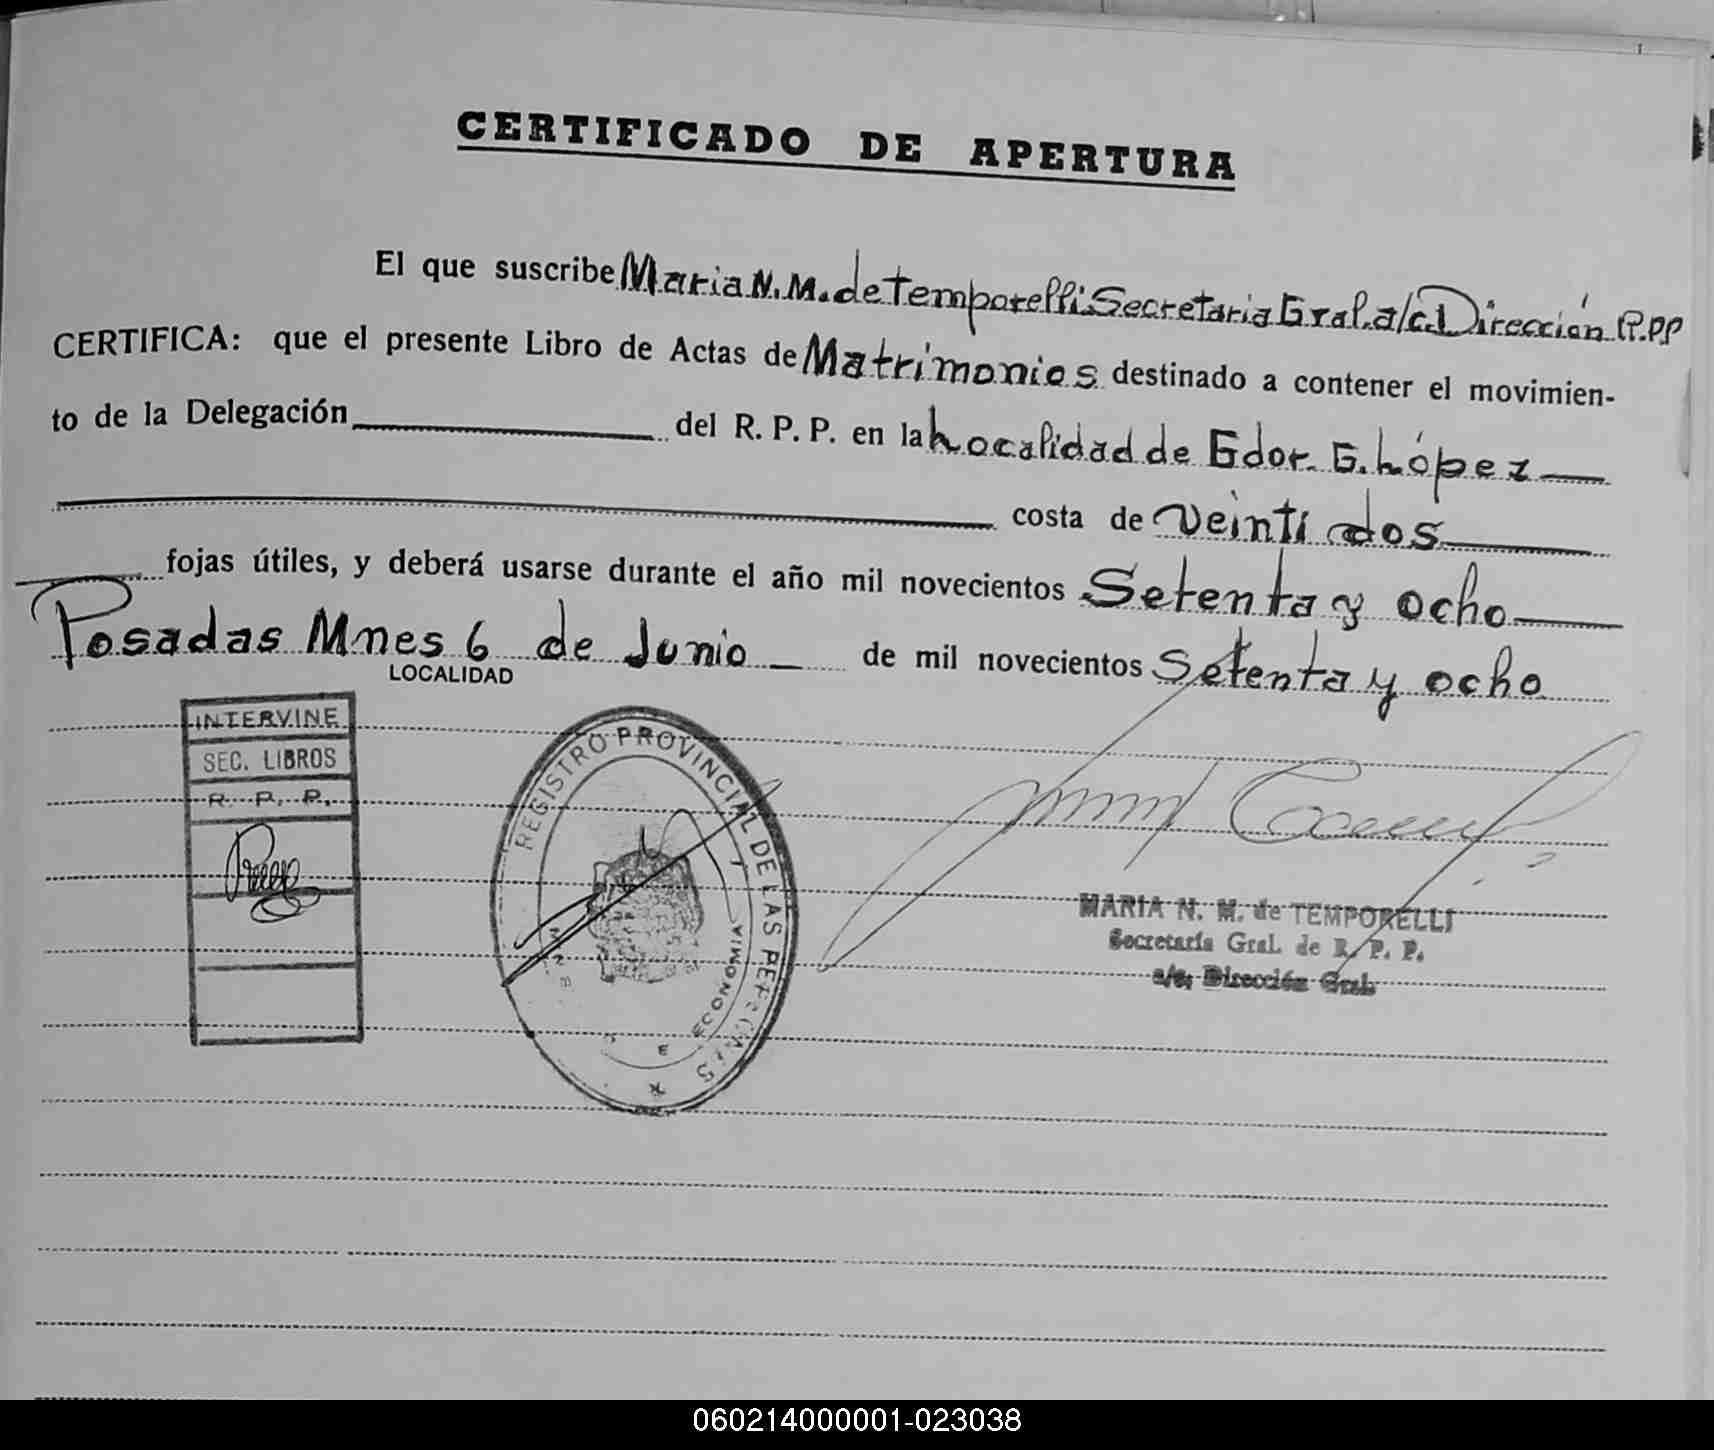 CERTIFICADO DE APERTURA
El que suscribe Maria N. M. de temporelli. Secretaria Gral. a/c. Dirección R.PP
CERTIFICA: que el presente Libro de Actas de Matrimonios destinado a contener el movimien-
to de la Delegación del R. P. P. en la Localidad de Gdor. G. López
costa de Veinti dos
fojas útiles, y deberá usarse durante el año mil novecientos Setenta y ocho
Posadas Mnes 6 de Junio de mil novecientos Setenta y ocho
LOCALIDAD
INTERVINE
SEC. LIBROS
R. P. P.
REGISTRO PROVINCIAL DE LAS PERSONAS
ECONOMIA
MARIA N. M. de TEMPORELLI
Secretaria Gral. de R. P. P.
a/c. Dirección Gral.
060214000001-023038